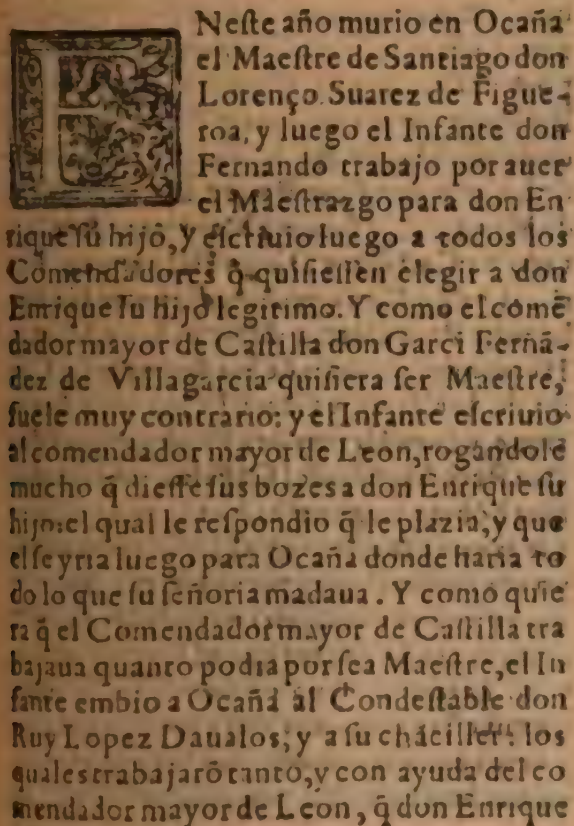 ENeſte año murio en Ocaña
el Maeſtre de Santiago don
Lorenço Suarez de Figue-
roa, y luego el Infante don
Fernando trabajo por auer
el Maeſtrazgo para don En
rique ſu hijo, y eſcriuio luego a todos los
Comendadores q̃ quiſieſſen elegir a don
Enrique ſu hijo legitimo. Y como el comẽ
dador mayor de Caſtilla don Garci Fernã-
dez de Villagarcia quiſiera ſer Maeſtre,
fuele muy contrario: y el Infante eſcriuio
al comendador mayor de Leon, rogandole
mucho q̃ dieſſe ſus bozes a don Enrique ſu
hijo: el qual le reſpondio q̃ le plazia, y que
el ſe yria luego para Ocaña donde haria to
do lo que ſu ſeñoria mãdaua. Y como quie
ra q̃ el Comendador mayor de Caſtilla tra
bajaua quanto podia por ſea Maeſtre, el In
fante embio a Ocaña al Condeſtable don
Ruy Lopez Daualos, y a ſu chãciller: los
quales trabajarõ tanto, y con ayuda del co
mendador mayor de Leon, q̃ don Enrique